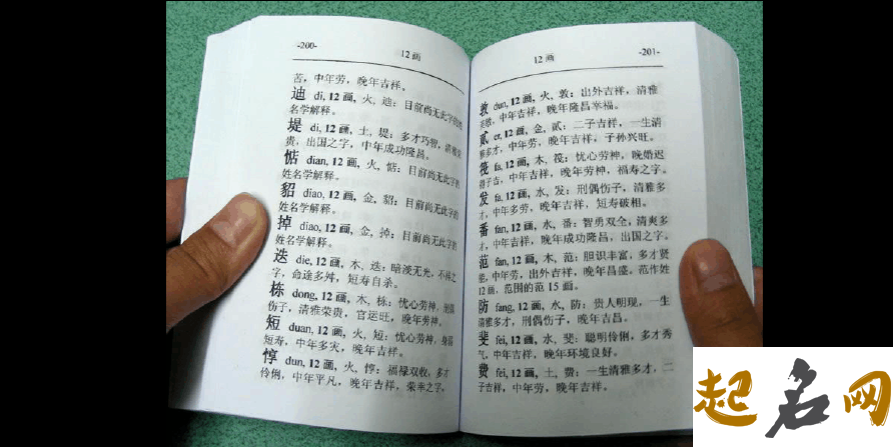 -200-
12画
苦，中年劳，晚年吉祥。
迪 di, 12画，火，迪：目前尚无此字的姓
名学解释。
堤 di, 12画，土，堤：多才巧智，清雅荣
贵，出国之字，中年成功隆昌。
惦 dian, 12画，火，惦：目前尚无此字的
姓名学解释。
貂 diao, 12画，金，貂：目前尚无此字的
姓名学解释。
掉 diao, 12画，金，掉：目前尚无此字的
姓名学解释。
迭 die, 12画，木，迭：暗淡无光，不祥之
字，命途多舛，短寿自杀。
栋 dong, 12画，木，栋：忧心劳神，身弱
伤子，清雅荣贵，官运旺，晚年劳神。
短 duan, 12画，火，短：忧心劳神，身弱
短寿，中年多灾，晚年吉祥。
惇 dun, 12画，火，惇：福禄双收，多才
伶俐，中年平凡，晚年吉祥，荣幸之字。
12画
-201-
敦 dun, 12画，火，敦：出外吉祥，清雅
伶俐，中年吉祥，晚年隆昌幸福。
贰 er, 12画，金，贰：二子吉祥，一生清
雅多才，中年劳，晚年吉祥，子孙兴旺。
筏 fa, 12画，木，筏：忧心劳神，晚婚迟
得子吉，中年吉祥，晚年劳神，福寿之字。
发 fa, 12画，水，发：刑偶伤子，清雅多
才，中年多劳，晚年吉祥，短寿破相。
番 fan, 12画，水，番：智勇双全，清爽多
才，中年吉祥，晚年成功隆昌，出国之字。
范 fan, 12画，木，范：胆识丰富，多才贤
能，中年劳，出外吉祥，晚年昌盛。范作姓
12画，范围的范15画。
防 fang, 12画，水，防：贵人明现，一生
清雅多才，刑偶伤子，晚年吉昌。
斐 fei, 12画，水，斐：聪明伶俐，多才秀
气，中年吉祥，晚年环境良好。
费 fei, 12画，土，费：一生清雅多才，二
子吉祥，中年劳，晚年吉祥。
起名网